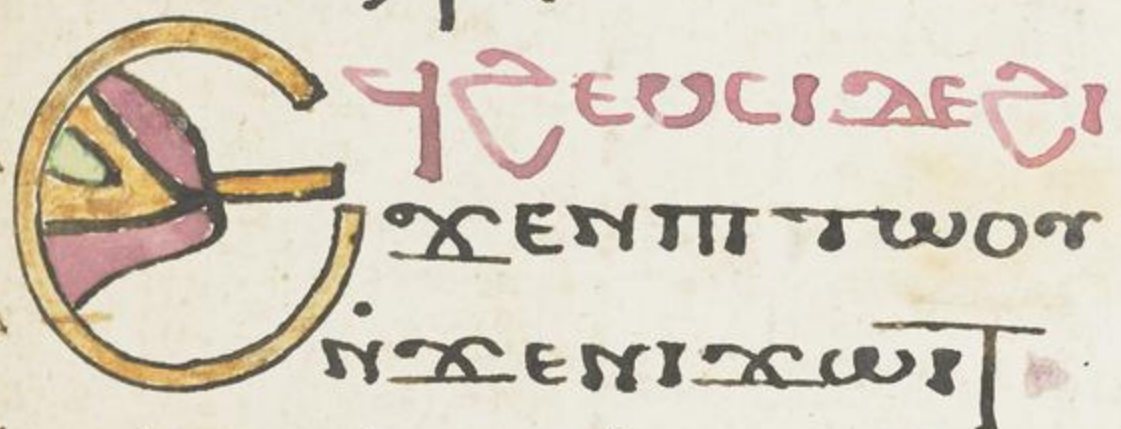 Ⲉϥϩⲉⲙⲥⲓ ⲇⲉ ϩⲓ
ϫⲉⲛ ⲡⲓⲧⲱⲟⲩ
ⲛ̇ϫⲉⲛⲓϫⲱⲓⲧ